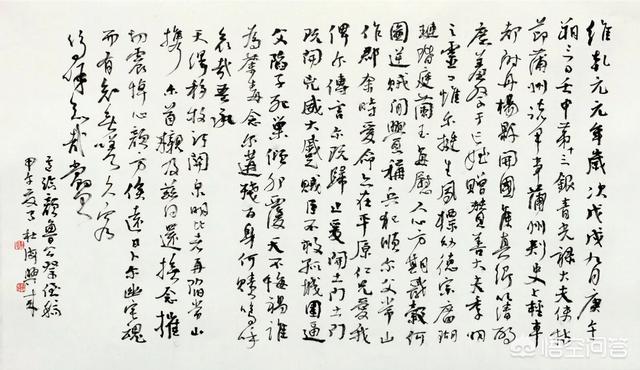 維乾元元年歲次戊戌九月庚午
朔三日壬申第十三銀青光祿大夫使持
節蒲州諸軍事蒲州刺史上輕車
都尉丹楊縣開國侯真卿以清酌
庶羞祭于亡姪贈贊善大夫季明
之靈曰惟爾挺生夙標幼德宗廟瑚
璉階庭蘭玉每慰人心方期戩穀何
圖逆賊間釁稱兵犯順爾父常山
作郡余時受命亦在平原仁兄愛我
俾爾傳言爾既歸止爰開土門土門
既開兇威大蹙賊臣不救孤城圍逼
父陷子死巢傾卵覆天不悔禍誰
為荼毒念爾遘殘百身何贖嗚乎
哀哉吾承
天澤移牧河關泉明比者再陷常山
攜爾首櫬及茲同還撫念摧
切震悼心顏方俟遠日卜爾幽宅魂
而有知無嗟久客
嗚呼哀哉尚饗
意臨顏魯公祭侄稿
甲午夏 杜海興
悟空问答